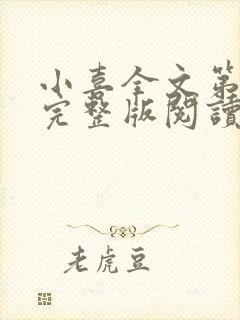 小喜全文第
完整版閱讀
老虎豆